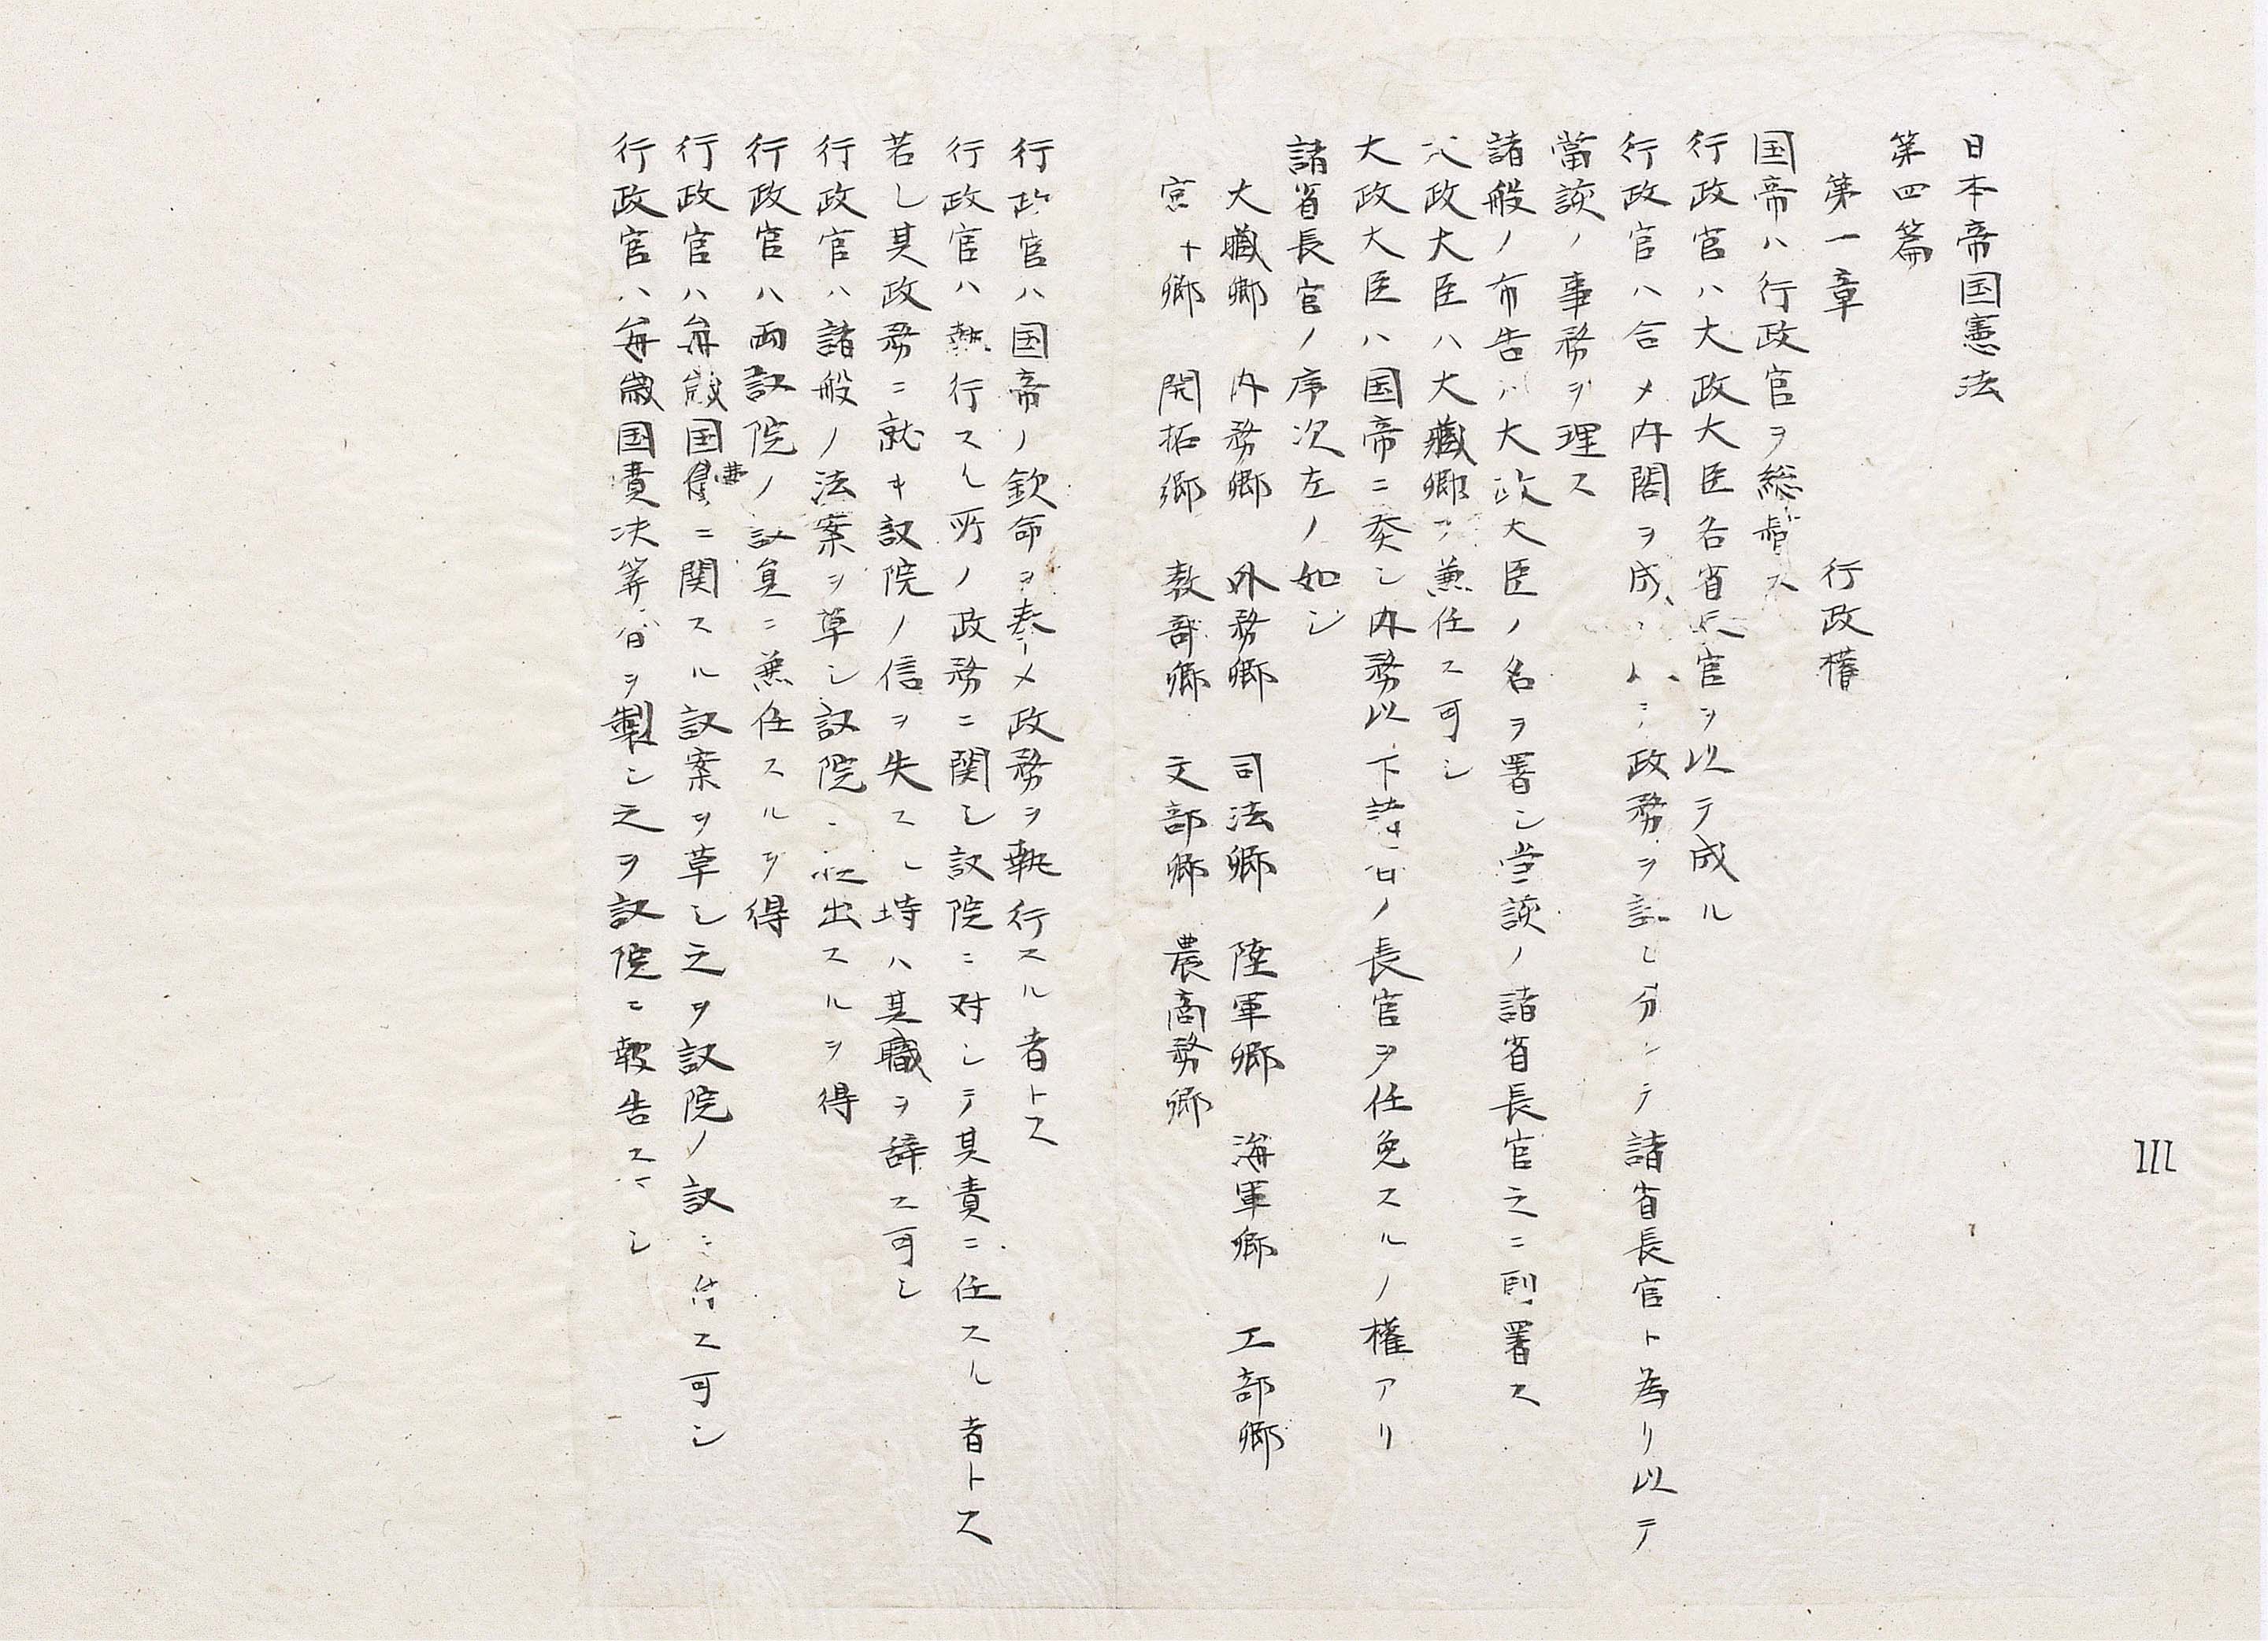 日本帝国憲法
第四篇
第一章　行政権
国帝ハ行政官ヲ総督ス
行政官ハ大政大臣各省長官ヲ以テ成ル
行政官ハ合メ内閣ヲ成 政務ヲ議シ分レテ諸省長官ト為リ以テ
當該ノ事務ヲ理ス
諸般ノ布告ハ大政大臣ノ名ヲ署シ当該ノ諸省長官之ニ副署ス
大政大臣ハ大蔵卿ヲ兼任ス可シ
大政大臣ハ国帝ニ奏シ内務以下諸省ノ長官ヲ任免スルノ権アリ
諸省長官ノ序次左ノ如シ
大蔵卿　内務卿　外務卿　司法卿　陸軍卿　海軍卿　工部卿
宮内卿　開拓卿　教部卿　文部卿　農商務卿
行政官ハ国帝ノ欽命ヲ奉シメ政務ヲ執行スル者トス
行政官ハ執行スル所ノ政務ニ関シ訳院ニ対シテ其責ニ任スル者トス
若シ其政務ニ就キ訳院ノ信ヲ失スル時ハ其職ヲ辞ス可シ
行政官ハ諸般ノ法案ヲ草シ訳院ニ提出スルヲ得
行政官ハ両訳院ノ訳員ニ兼任スルヲ得
行政官ハ毎歳国費ニ関スル訳案ヲ草シ之ヲ訳院ノ訳ニ付ス可シ
行政官ハ毎歳国費決算書ヲ製シ之ヲ訳院ニ報告ス可シ
111